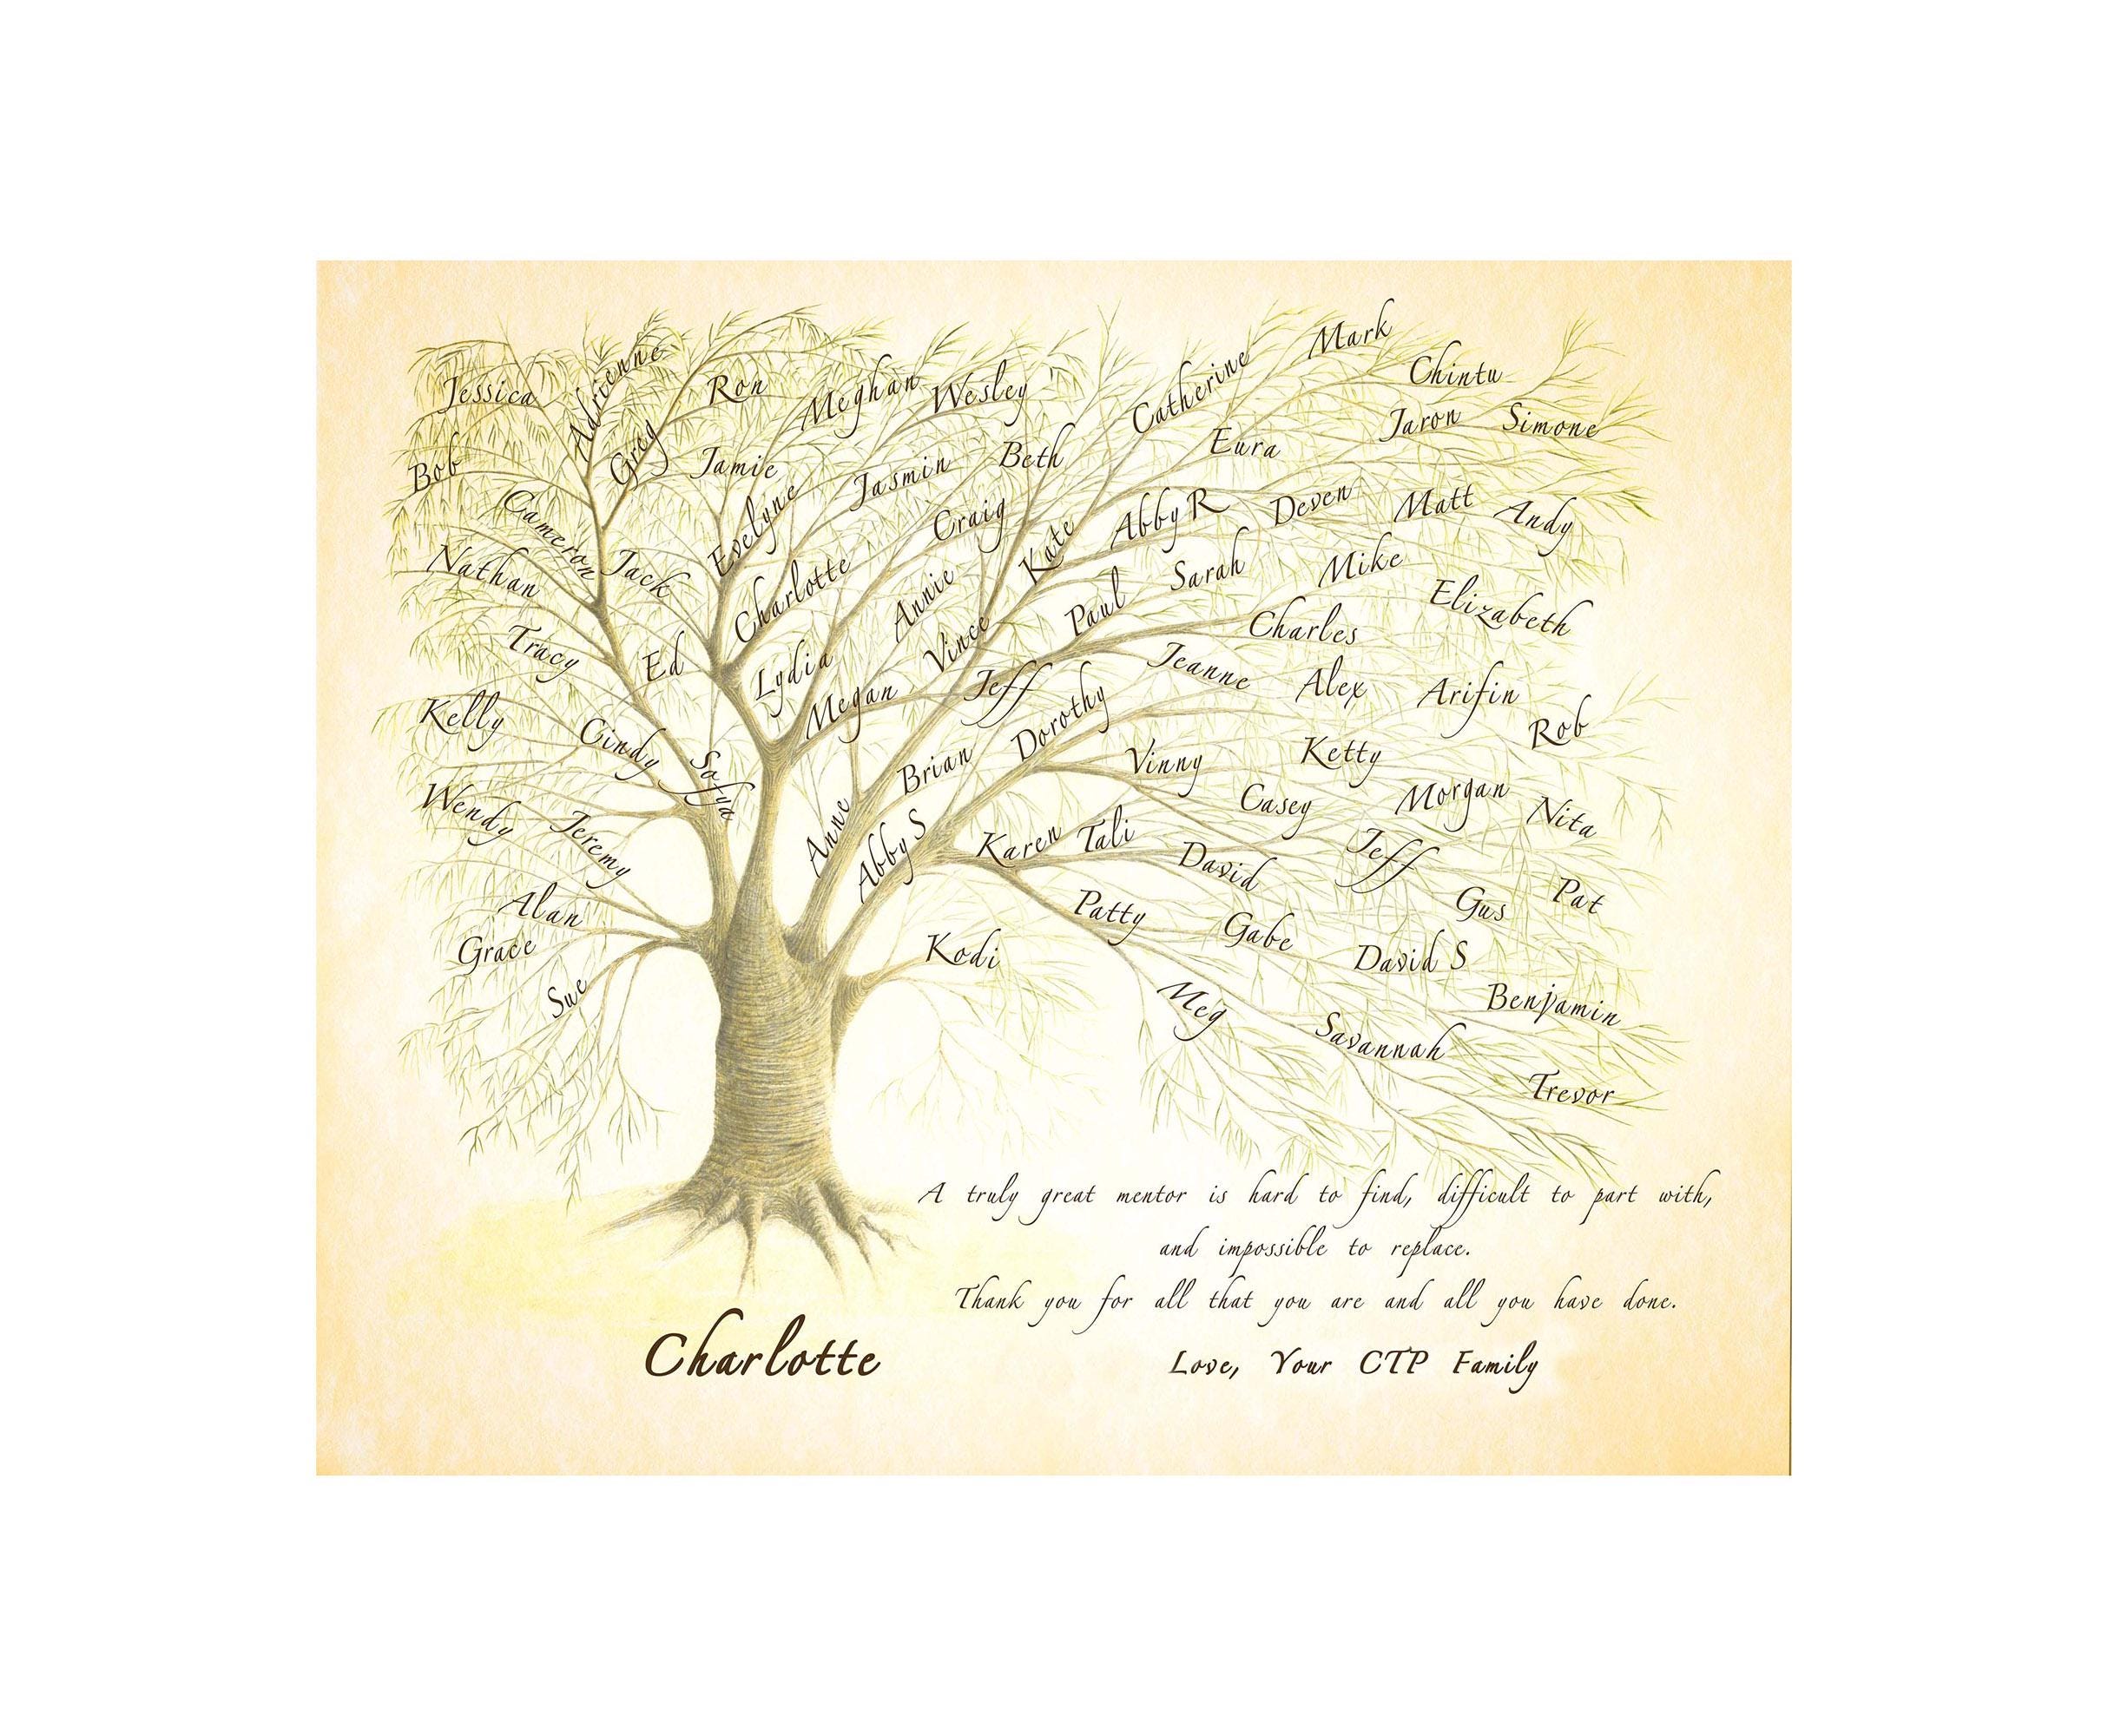 Mark
Adrienne
Chintu
Jessica
Ron
Meghan
Wesley
Catherine
Jaron
Simone
Greg
Bob
Jamie
Jasmin
Beth
Eura
Cameron
Evelyne
Craig
Kate
Abby R
Deven
Matt
Andy
Nathan
Jack
Charlotte
Annie
Paul
Sarah
Mike
Elizabeth
Tracy
Ed
Lydia
Vince
Charles
Megan
Jeff
Jeanne
Alex
Arifin
Kelly
Cindy
Sofya
Dorothy
Rob
Brian
Vinny
Ketty
Wendy
Casey
Morgan
Nita
Jeremy
Anne
Abby S
Karen
Tali
David
Jeff
Alan
Patty
Gus
Pat
Grace
Kodi
Gabe
David S
Sue
Meg
Benjamin
Savannah
Trevor
A truly great mentor is hard to find, difficult to part with,
and impossible to replace.
Thank you for all that you are and all you have done.
Charlotte
Love, Your CTP Family